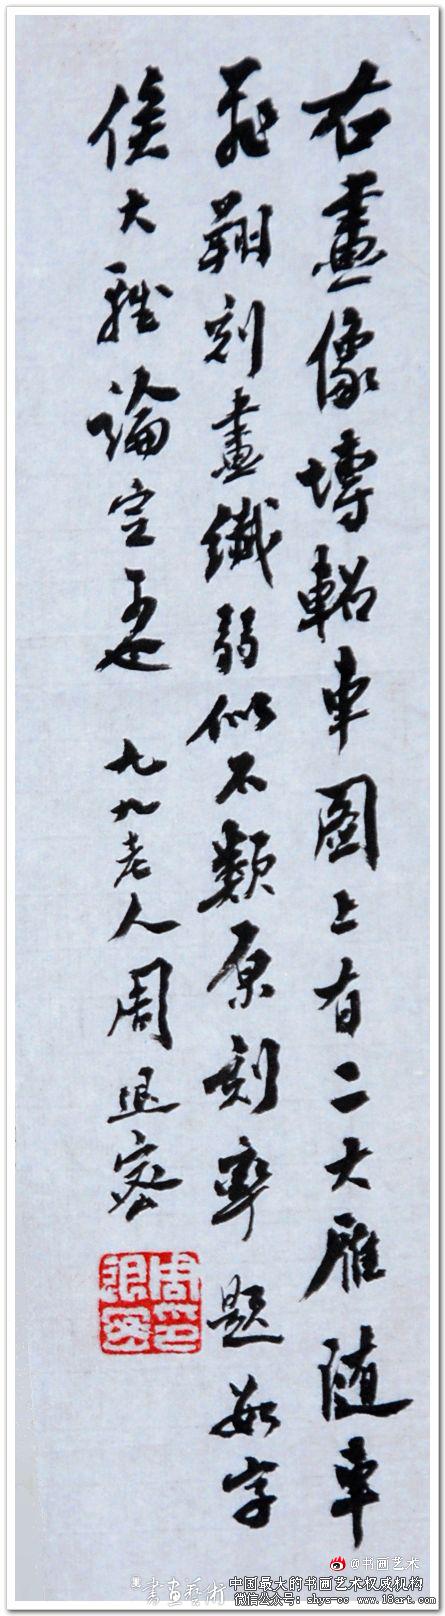 右畫像塼軺車圖上有二大雁随車
飛翔刻畫纖弱似不類原刻率題數字
俟大雅論定
九九老人周退密
周退密印
@书画艺术
書畫藝術
中国最大的书画艺术权威机构
微信公众号: shys-cc www.18art.com